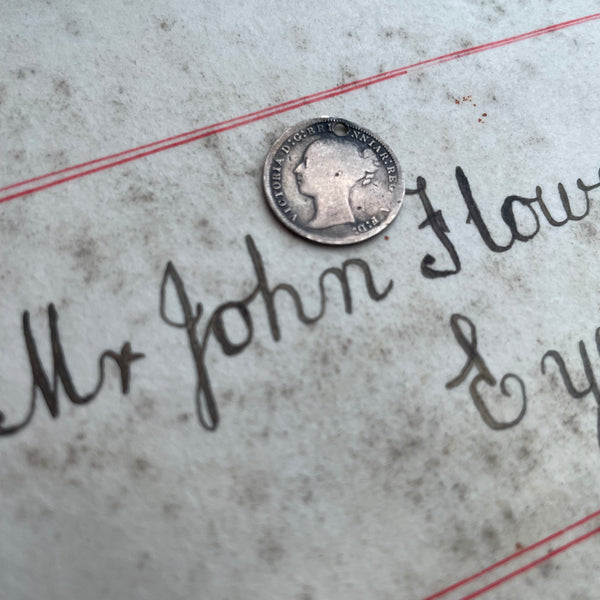 VICTORIA D:G:BRI NNIAR:REG F:D:
Mr John Flow
Ey